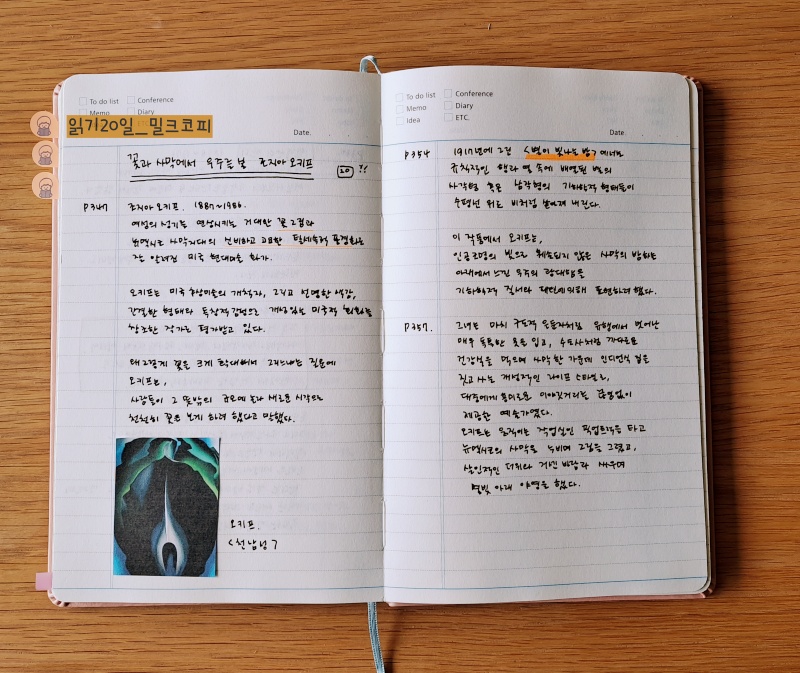 To do list
Conference
Memo
Diary
읽기20일_밀크코피
Date.
꽃과 사막에서 우주를 본 조지아 오키프
20
P347
조지아 오키프. 1887~1986.
여성의 성기를 연상시키는 거대한 꽃 그림과
뉴멕시코 사막지대의 신비하고 고요한 탈세속적 풍경화로
잘 알려진 미국 현대미술 화가.
오키프는 미국 추상미술의 개척자, 그리고 선명한 색감,
간결한 형태와 독창적 감성으로 개성있는 미국적 회화를
창조한 작가로 평가받고 있다.
왜 그렇게 꽃을 크게 확대해서 그리느냐는 질문에
오키프는,
사람들이 그 뜻밖의 크기에 놀라 새로운 시각으로
천천히 꽃을 보게 하려 했다고 말했다.
오키프.
<천남성>
To do list
Conference
Memo
Diary
Idea
ETC.
Date.
P354
1917년에 그린 <별이 빛나는 밤>에서는
규칙적인 행과 열 속에 배열된 별의
사각형 혹은 삼각형의 기하학적 형태들이
수평선 위로 비처럼 쏟아져 내린다.
이 작품에서 오키프는,
인공조명의 빛으로 훼손되지 않은 사막의 밤하늘
아래에서 느낀 우주의 광대함을
기하학적 질서와 패턴에 의해 표현하려 했다.
P357.
그녀는 마치 구도적 은둔자처럼 유행에서 벗어난
매우 독특한 옷을 입고, 수도사처럼 까다로운
건강식을 먹으며 사막 한 가운데 인디언식 집을
짓고 사는 개성적인 라이프 스타일로,
대중에게 흥미로운 이야깃거리를 끊임없이
제공한 예술가였다.
오키프는 움직이는 작업실인 픽업트럭을 타고
뉴멕시코의 사막을 누비며 그림을 그렸고,
살인적인 더위와 거친 바람과 싸우며
별빛 아래 야영을 했다.